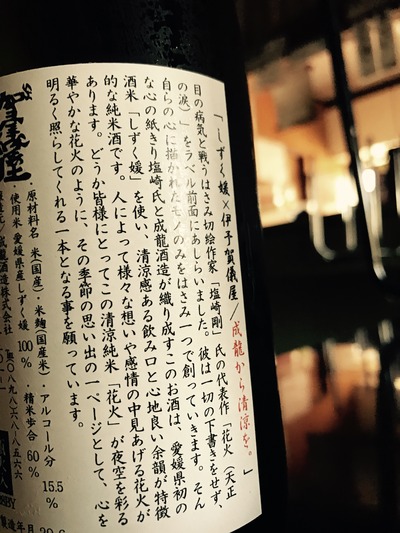 「しずく媛×伊予賀儀屋/成龍から清涼を。」
目の病気と戦うはさみ切絵作家「塩崎剛」氏の代表作「花火(天正
の涙)」をラベル前面にあしらいました。彼は一切の下書きをせず、
自らの心に描かれたモノのみをはさみ一つで創っていきます。そん
な心の紙きり塩崎氏と成龍酒造が織り成すこのお酒は、愛媛県初の
酒米「しずく媛」を使い、清涼感ある飲み口と心地良い余韻が特徴
的な純米酒です。人によって様々な想いや感情の中見あげる花火が
あります。どうか皆様にとってこの清涼純米「花火」が夜空を彩る
華やかな花火のように、その季節の思い出の一ページとして、心を
明るく照らしてくれる一本となる事を願っています。
賀儀屋
・原材料名 米(国産)・米麹(国産米) アルコール分 15.5%
・使用米 愛媛県産しずく媛 100% ・精米歩合 60%
成龍酒造株式会社
〇八九八-六八-八五六六
製造年月